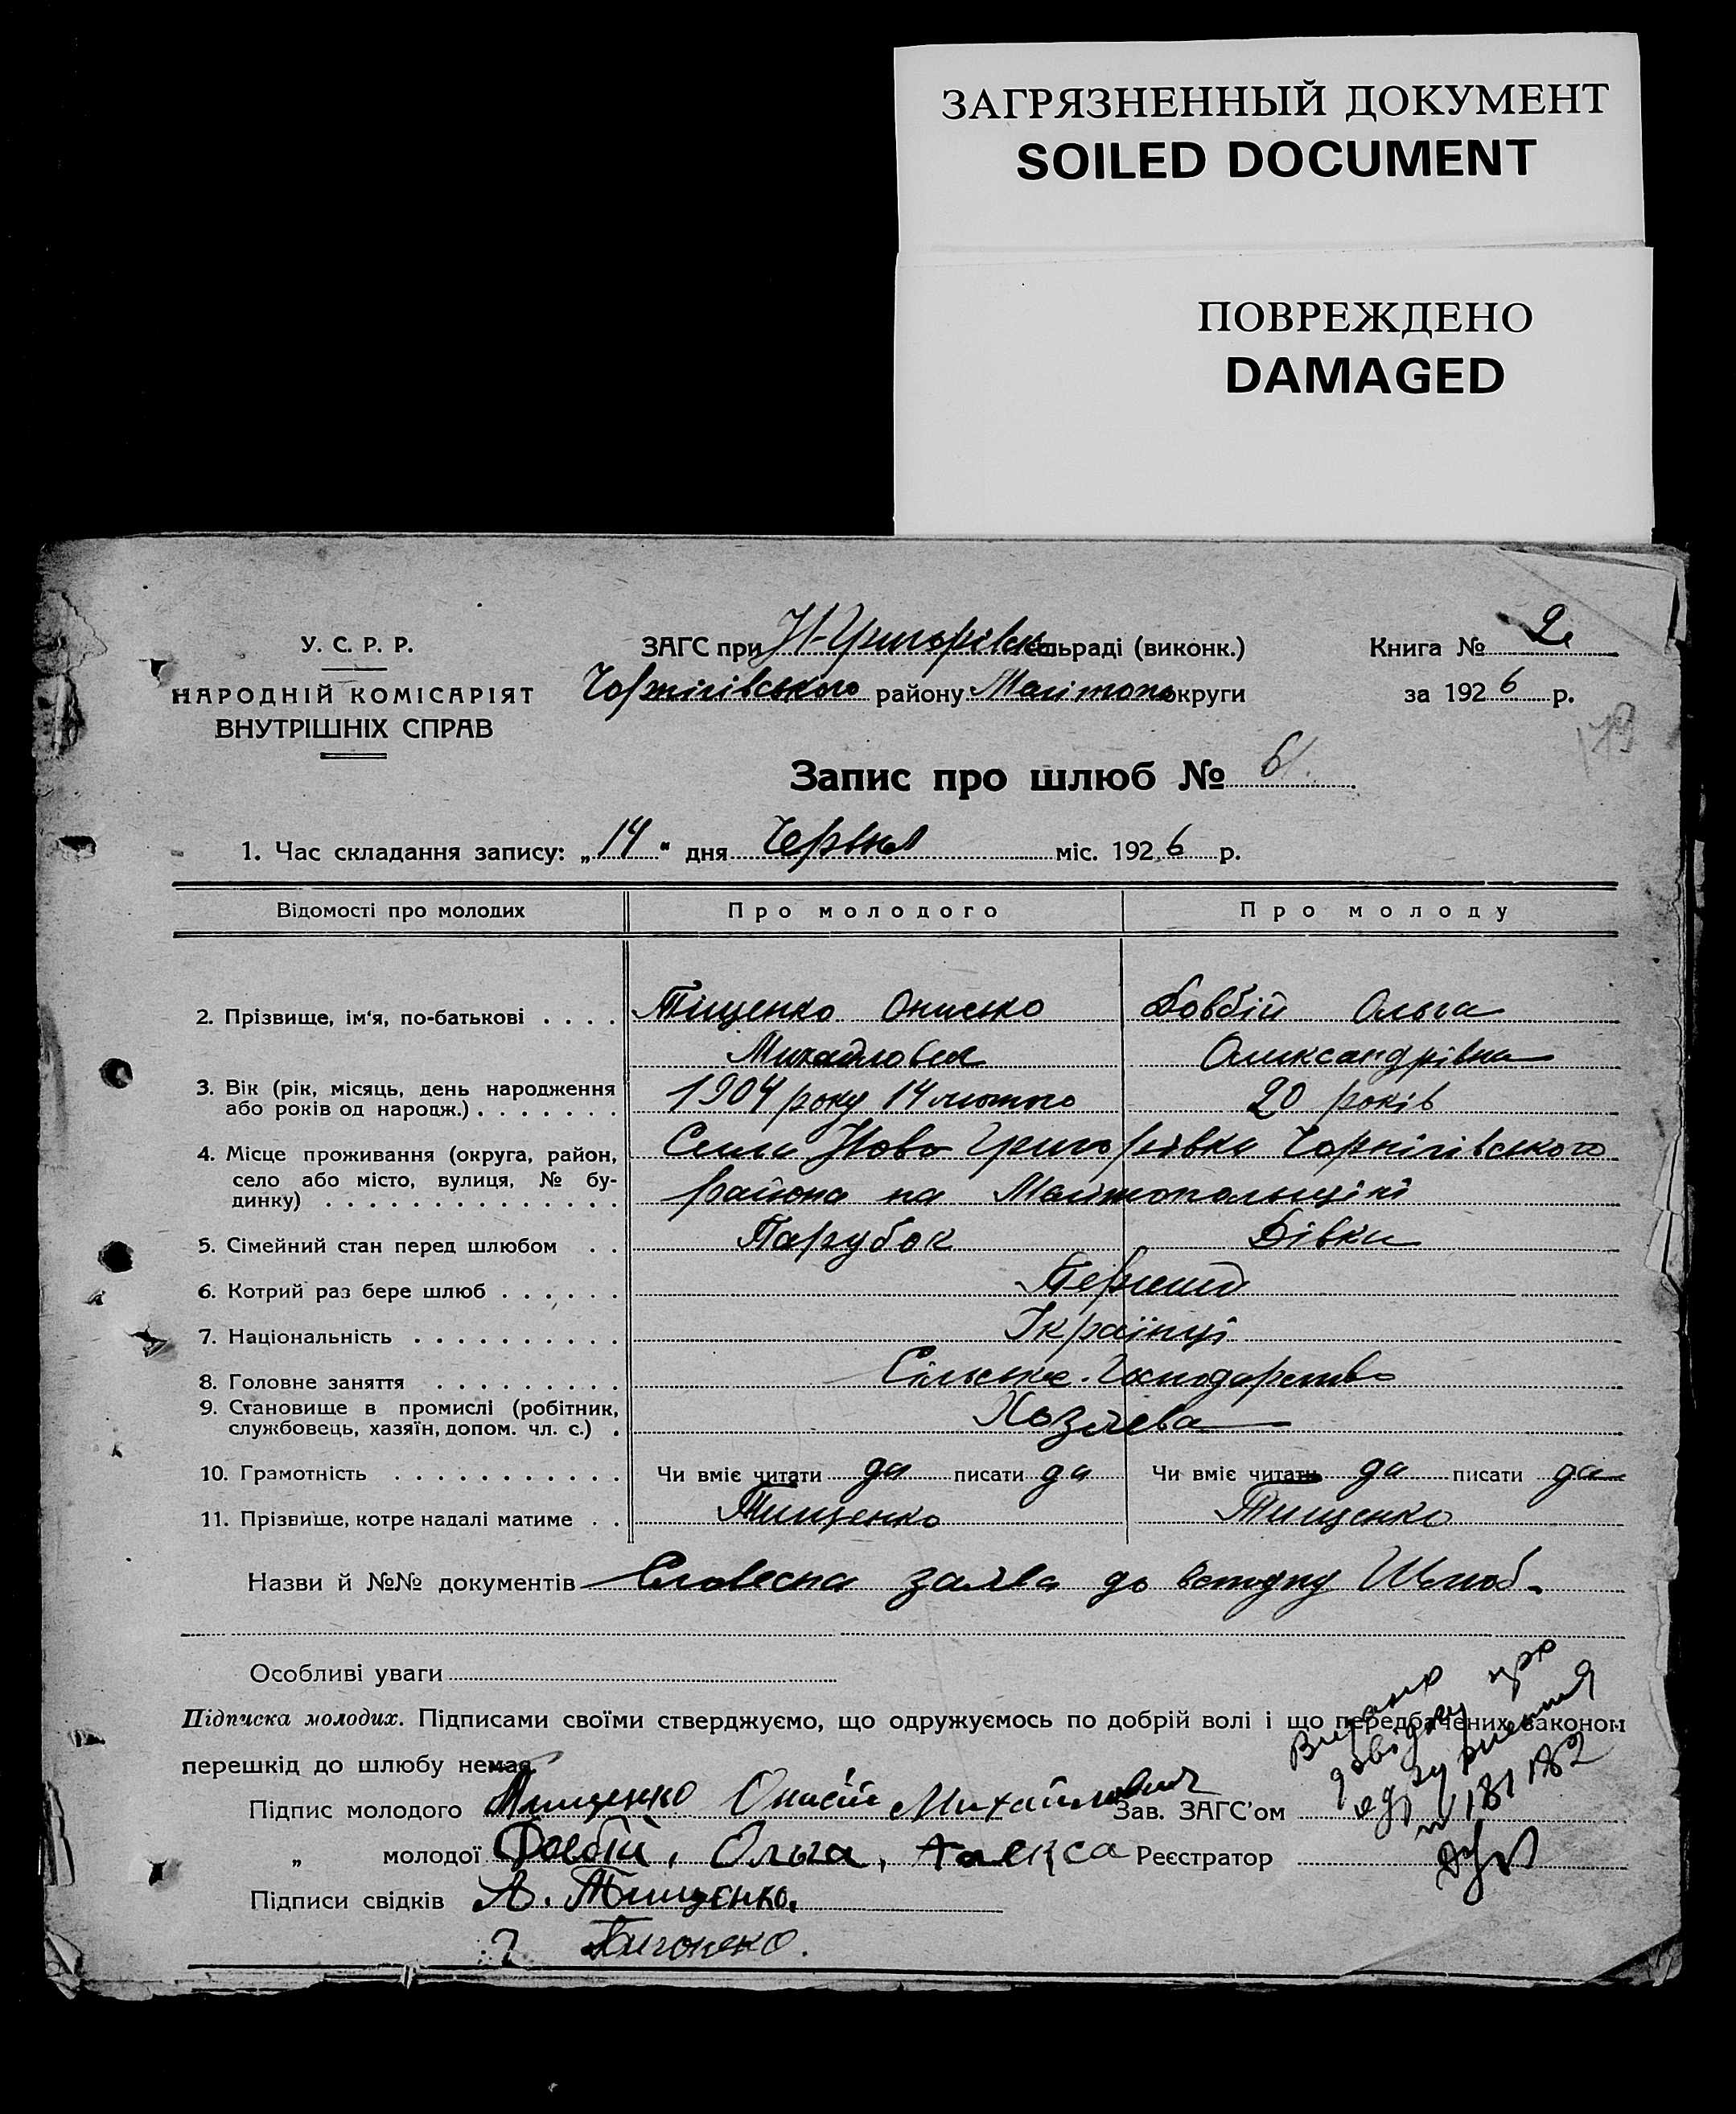 ЗАГРЯЗНЕННЫЙ ДОКУМЕНТ
SOILED DOCUMENT
ПОВРЕЖДЕНО
DAMAGED
У. С. Р. Р.
НАРОДНІЙ КОМІСАРІЯТ
ВНУТРІШНІХ СПРАВ
ЗАГС при Н-Григорівк сельраді (виконк.)
Чорнігівського району Маїтопо округи
Книга № 2
за 1926 р.
179
Запис про шлюб № 61.
1. Час складання запису: „14" дня Червня міс. 1926 р.
Відомості про молодих Про молодого Про молоду
2. Прізвище, ім'я, по-батькові . . . . Тіщенко Ониско Довбій Ольга
Михайлович Олександрівна
3. Вік (рік, місяць, день народження
або років од народж.) . . . . . . . 1904 року 14 лютого 20 років
4. Місце проживання (округа, район, Села Ново Григорівки Чорнігівського
село або місто, вулиця, № бу-
динку) . . . . . . . . . . . . . . района на
5. Сімейний стан перед шлюбом . . Парубок Дівка
6. Котрий раз бере шлюб . . . . . . Перший
7. Національність . . . . . . . . . . Українці
8. Головне заняття . . . . . . . . . Сільське-Господарство
9. Становище в промислі (робітник,
службовець, хазяїн, допом. чл. с.) . Хозяева
10. Грамотність . . . . . . . . . . . Чи вміє читати да писати да Чи вміє читати да писати да
11. Прізвище, котре надалі матиме . . Тищенко Тищенко
Назви й №№ документів Словесна заява до вступу Шлюб-
Особливі уваги
Підписка молодих. Підписами своїми стверджуємо, що одружуємось по добрій волі і що передбачених законом
перешкід до шлюбу немає.
Підпис молодого Тищенко Онисій Михайлович Зав. ЗАГС'ом
„ молодої Довбій, Ольга, Алекса Реєстратор
Підписи свідків А. Тищенко.
Видано
довідку про
одруження
181 182